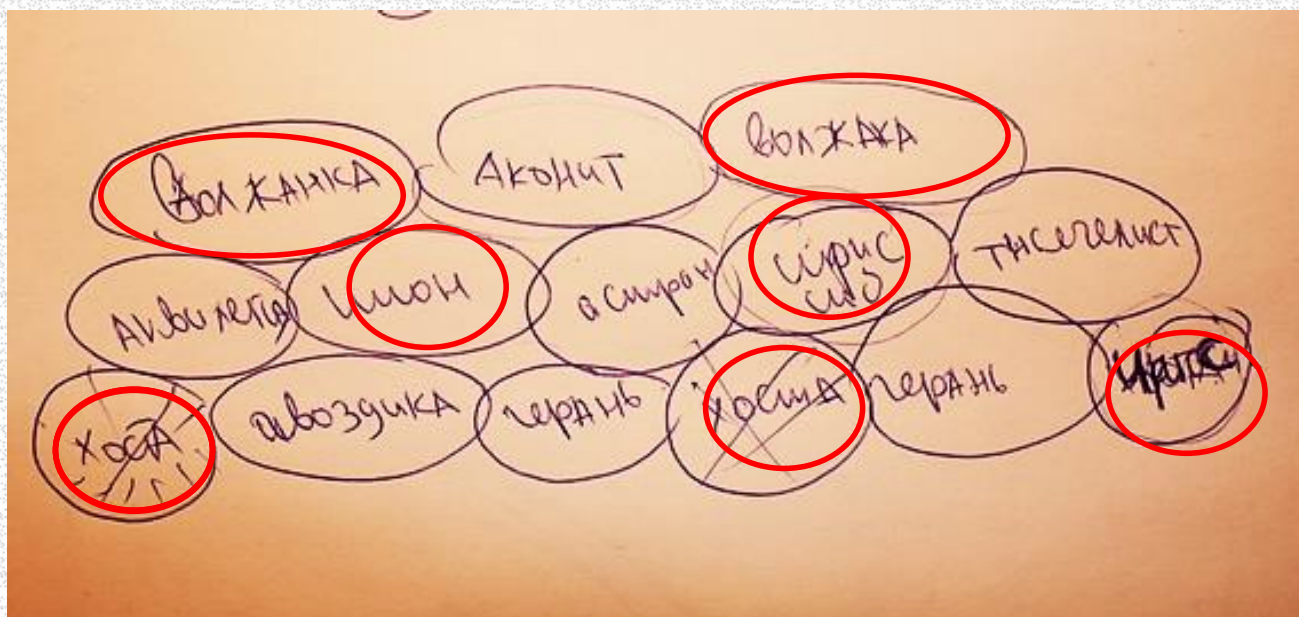 Волжанка Аконит Волжака
аквилегия пион астран ирис тысечелист
сиб
хоста гвоздика герань хоста герань